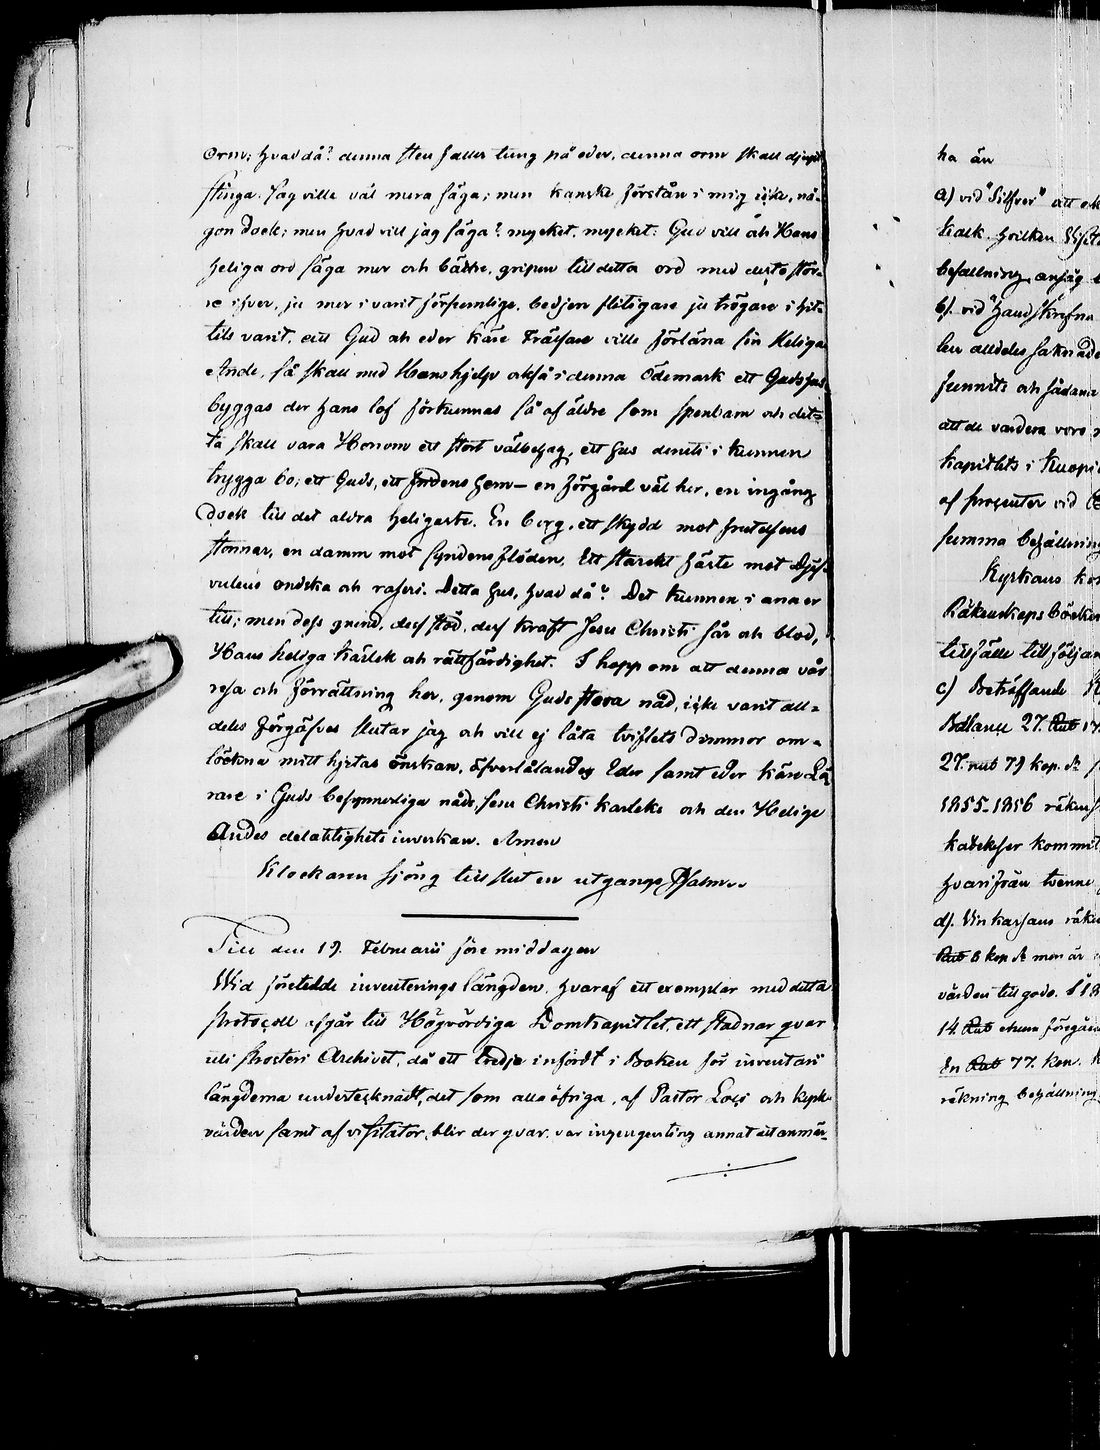 Orm; hvad då? denna sten faller tung på eder, denna orm skall djupt
stinga. Jag ville väl mera säga; men kanske förstån i mig icke, nå-
gon dock; men hvad vill jag säga? mycket, mycket: Gud vill och Hans
heliga ord säga mer och bättre, gripen till detta ord med desto stör-
re ifver, ju mer i varit försumlige, bedjen flitigare ju trögare i hit-
tils varit, att Gud och eder käre Frälsare ville förläna sin Heliga
Ande, så skall med Hans hjelp också i denna Ödemark ett Guds hus
byggas der hans lof förkunnas så af äldre som spenbarn och det-
ta skall vara Honom ett stort välbehag, ett hus deruti i kunnen
trygga bo; ett Guds, ett fridens hem – en förgård väl her, en ingång
dock till det aldra heligaste. En borg, ett skydd mot frestelsens
stormar, en damm mot syndens flöden, Ett starkt fäste mot Djef-
vulens ondska och raseri. Detta hus, hvad då? Det kunnen i
till; men dess grund, dess stöd, dess kraft Jesu Christi sår och blod,
Hans heliga kärlek och rättfärdighet. I hopp om att denna vår
resa och förrättning her, genom Guds stora nåd, icke varit all-
deles förgäfves slutar jag och vill ej låta tviflets dimmor om-
töckna mitt hjertas önskan, öfverlåtandes Eder samt eder käre Lä
rare i Guds besynnerliga nåd, Jesu Christi kärleks och den Helige
Andes delaktighets inverkan. Amen
Klockaren sjöng till slut en utgangs Psalm..
Till den 19. Februarii före middagen
Wid företedde inventerings längden, hvaraf ett exemplar med detta
Protocoll afgår till Högvördiga Domkapitlet, ett stadnar qvar
uti Prosteri Archivet, då ett tredje infördt i Boken för inventarii
längderna undertecknadt, det som alla öfriga, af Pastor Loci och kyrk-
värden samt af visitator, blir der qvar, var ingengenting annat att anmär-
ha än
a) vid "Silfver" att
kalk, hvilken
befallning
b). vid "Handskrefna
len alldeles saknade
funnits och sådana
att de vardera voro
kapitlets i Kuopio
af procenter vid
summa behållning
Kyrkans
Räkenskaps böcker
tillfälle till följan
c) Beträffande
Ballance 27. Rub 17
27. rub 79 kop. Sr
1855-1856 räken
kabeksser kommit
hvarifrån tvenne
d). Vinkassans räk
Rub 6 kop Sr men är
värden till godo. I 18
14. Rub
En Rub 77. kop.
räkning behållning